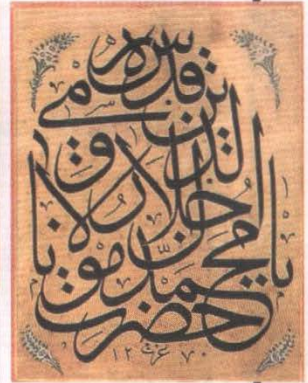 يا حضرت مولانا
محمد جلال الدين رومى
قدس سره
عزت ١٢٧٠